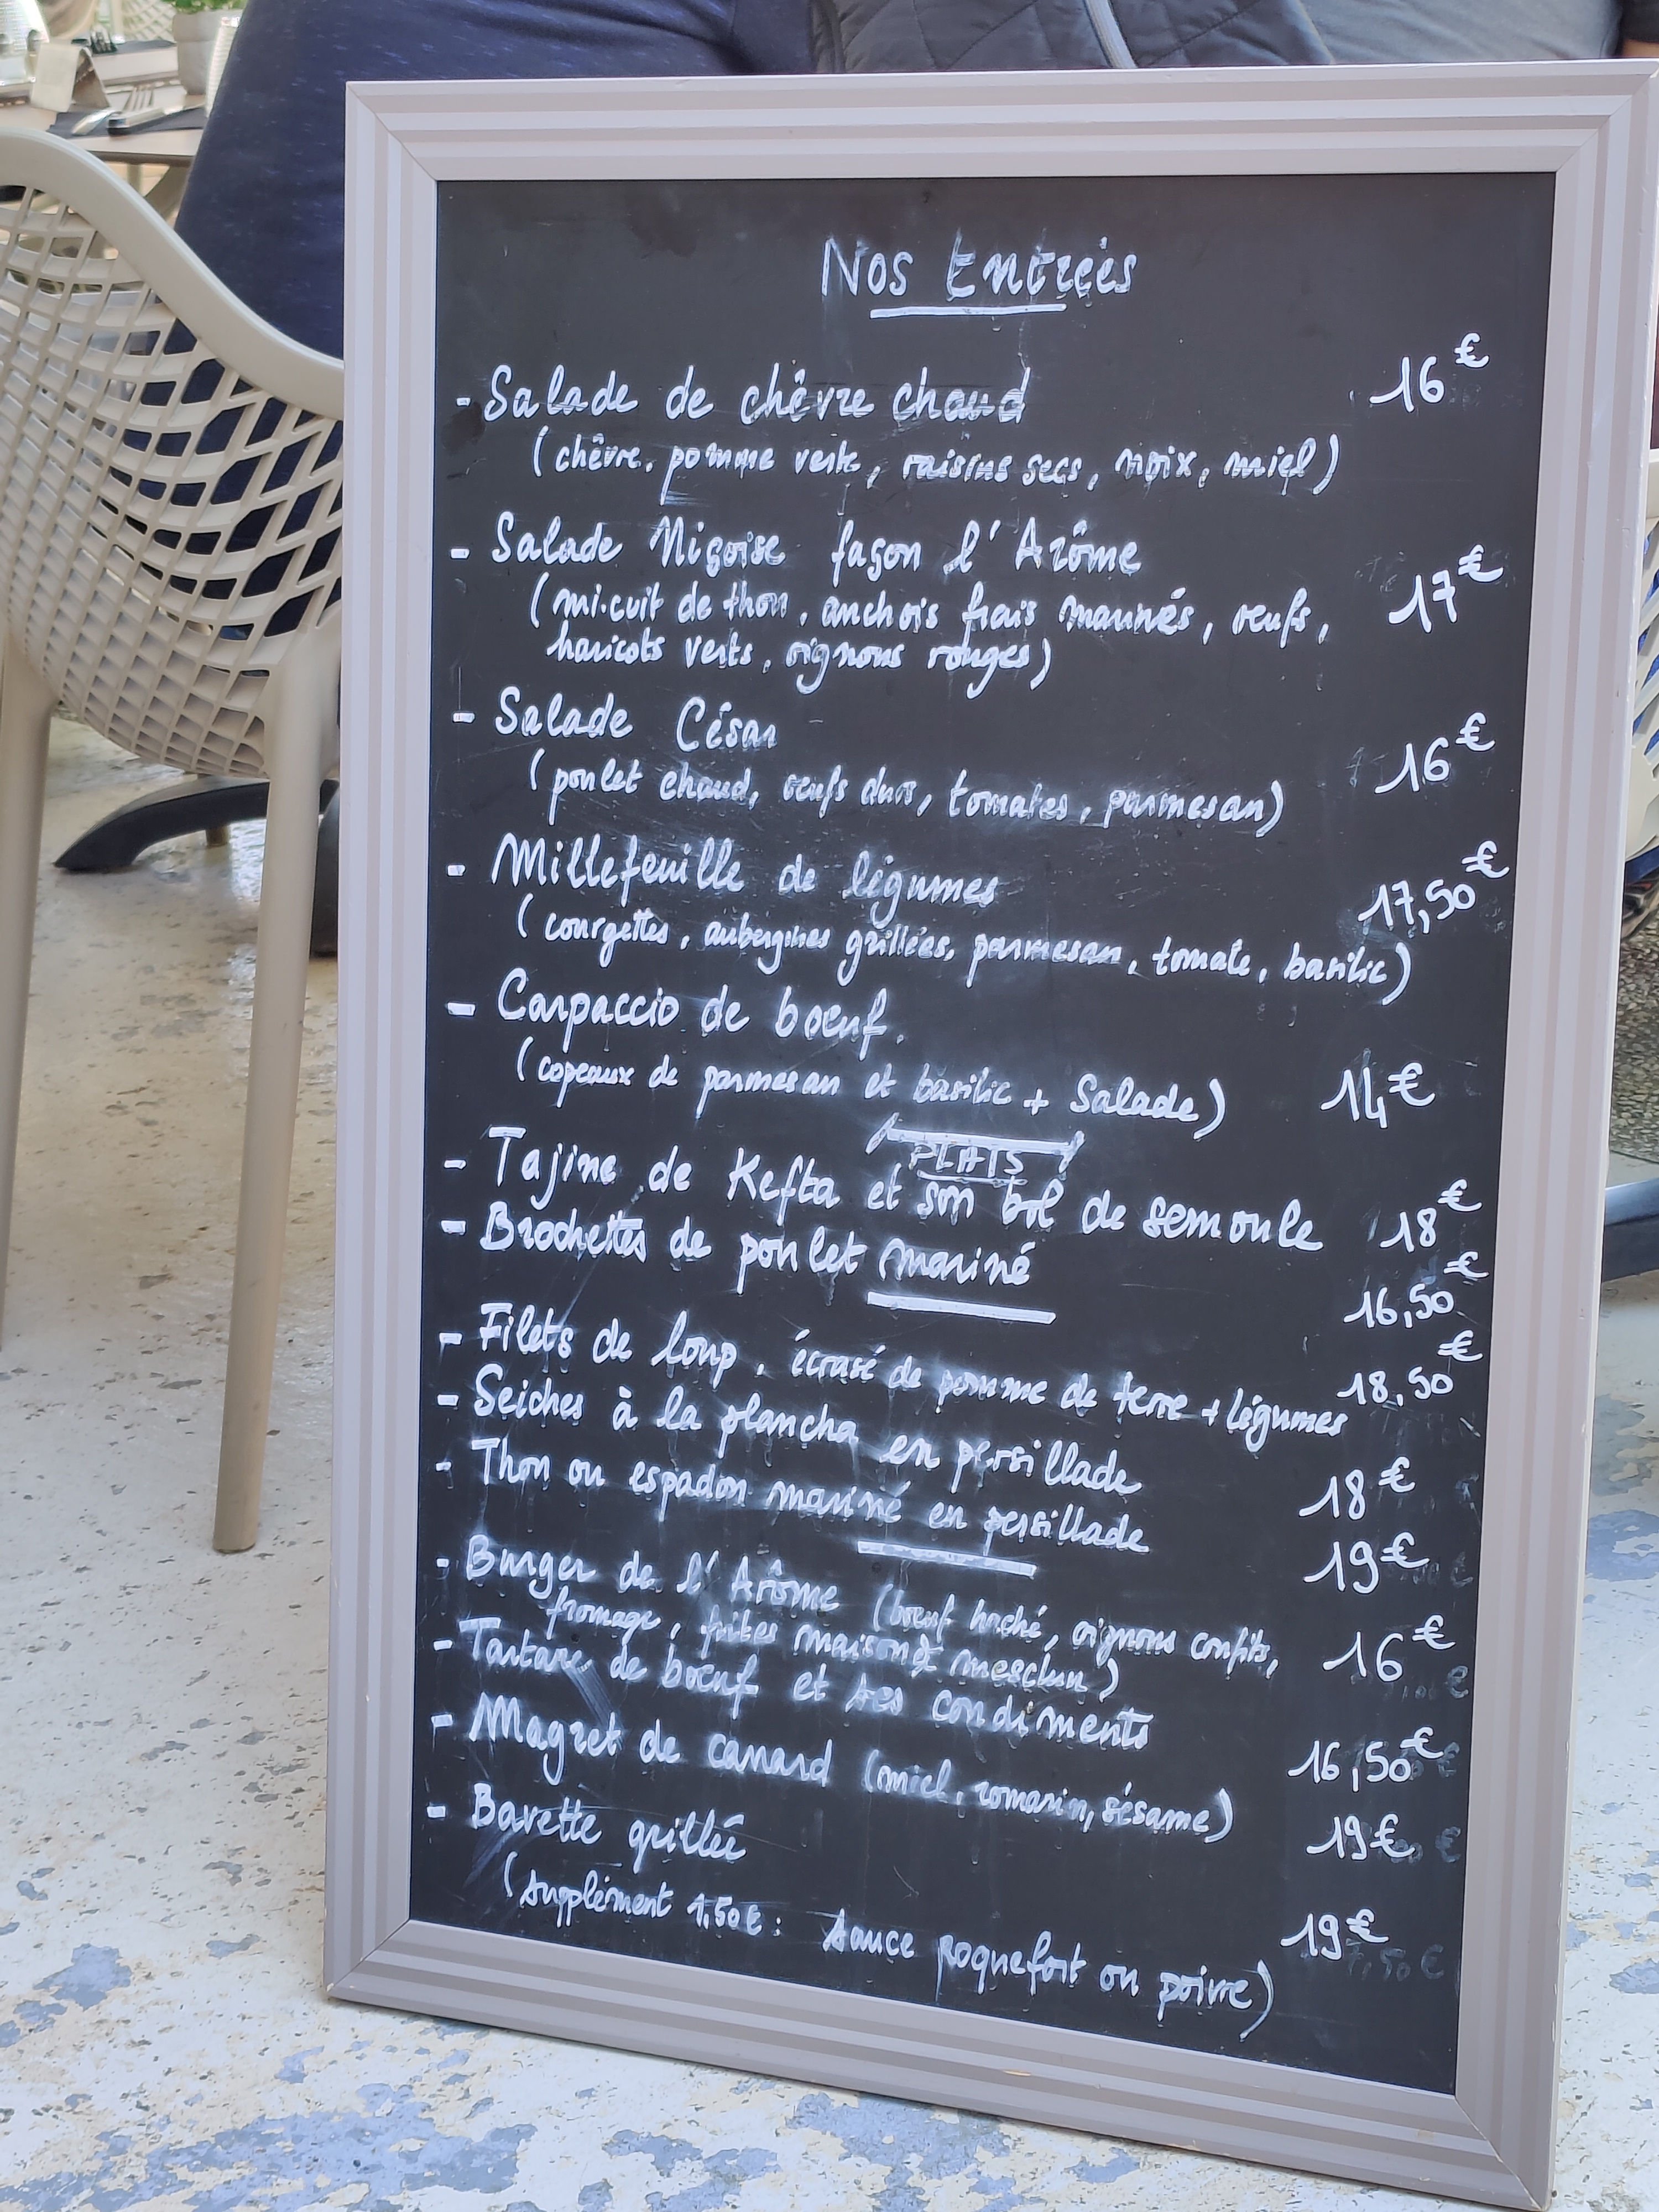 Nos Entrées
- Salade de chêvre chaud 16€
(chêvre, pomme verte, raisins secs, noix, miel)
- Salade Niçoise façon l'Arôme
(mi-cuit de thon, anchois frais marinés, œufs, 17€
haricots verts, oignons rouges)
- Salade César
(poulet chaud, œufs durs, tomates, parmesan) 16€
- Millefeuille de légumes 17,50€
(courgettes, aubergines grillées, parmesan, tomate, basilic)
- Carpaccio de bœuf.
(copeaux de parmesan et basilic + Salade) 14€
PLATS
- Tajine de Kefta et son bol de semoule 18€
- Brochettes de poulet mariné 16,50€
- Filets de loup, écrasé de pomme de terre + légumes 18,50€
- Seiches à la plancha en persillade 18€
- Thon ou espadon mariné en persillade 19€
- Burger de l'Arôme (bœuf haché, oignons confits, 16€
fromage, frites maison & mesclun)
- Tartare de bœuf et ses condiments 16,50€
- Magret de canard (miel, romarin, sésame) 19€
- Bavette grillée 19€
(supplément 1,50€ : sauce roquefort ou poivre)